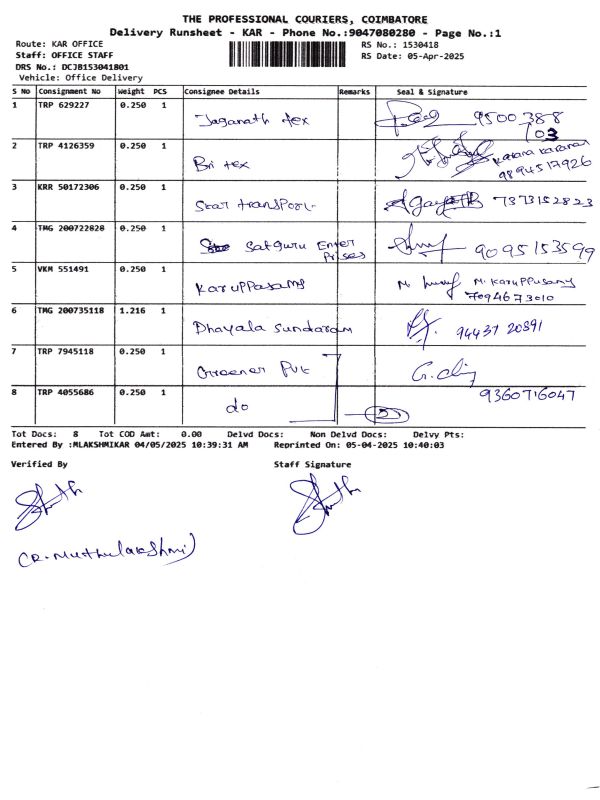 THE PROFESSIONAL COURIERS, COIMBATORE
Delivery Runsheet - KAR - Phone No.:9047080280 - Page No.:1
Route: KAR OFFICE RS No.: 1530418
Staff: OFFICE STAFF RS Date: 05-Apr-2025
DRS No.: DCJB153041801
Vehicle: Office Delivery
S No Consignment No Weight PCS Consignee Details Remarks Seal & Signature
1 TRP 629227 0.250 1 Jaganath tex 9500388
103
2 TRP 4126359 0.250 1 Bri tex
9894517926
3 KRR 50172306 0.250 1 Star transport 7373152823
4 TMG 200722828 0.250 1 Satguru Enter
Prises 9095153599
5 VKM 551491 0.250 1 Karuppasamy M. Karuppusamy
7094673010
6 TMG 200735118 1.216 1 Dhayala Sundaram 94437 20391
7 TRP 7945118 0.250 1 Greener Pvt
8 TRP 4055686 0.250 1 do 9360716047
Tot Docs: 8 Tot COD Amt: 0.00 Delvd Docs: Non Delvd Docs: Delvy Pts:
Entered By :MLAKSHMIKAR 04/05/2025 10:39:31 AM Reprinted On: 05-04-2025 10:40:03
Verified By Staff Signature
(R. Muthulakshmi)